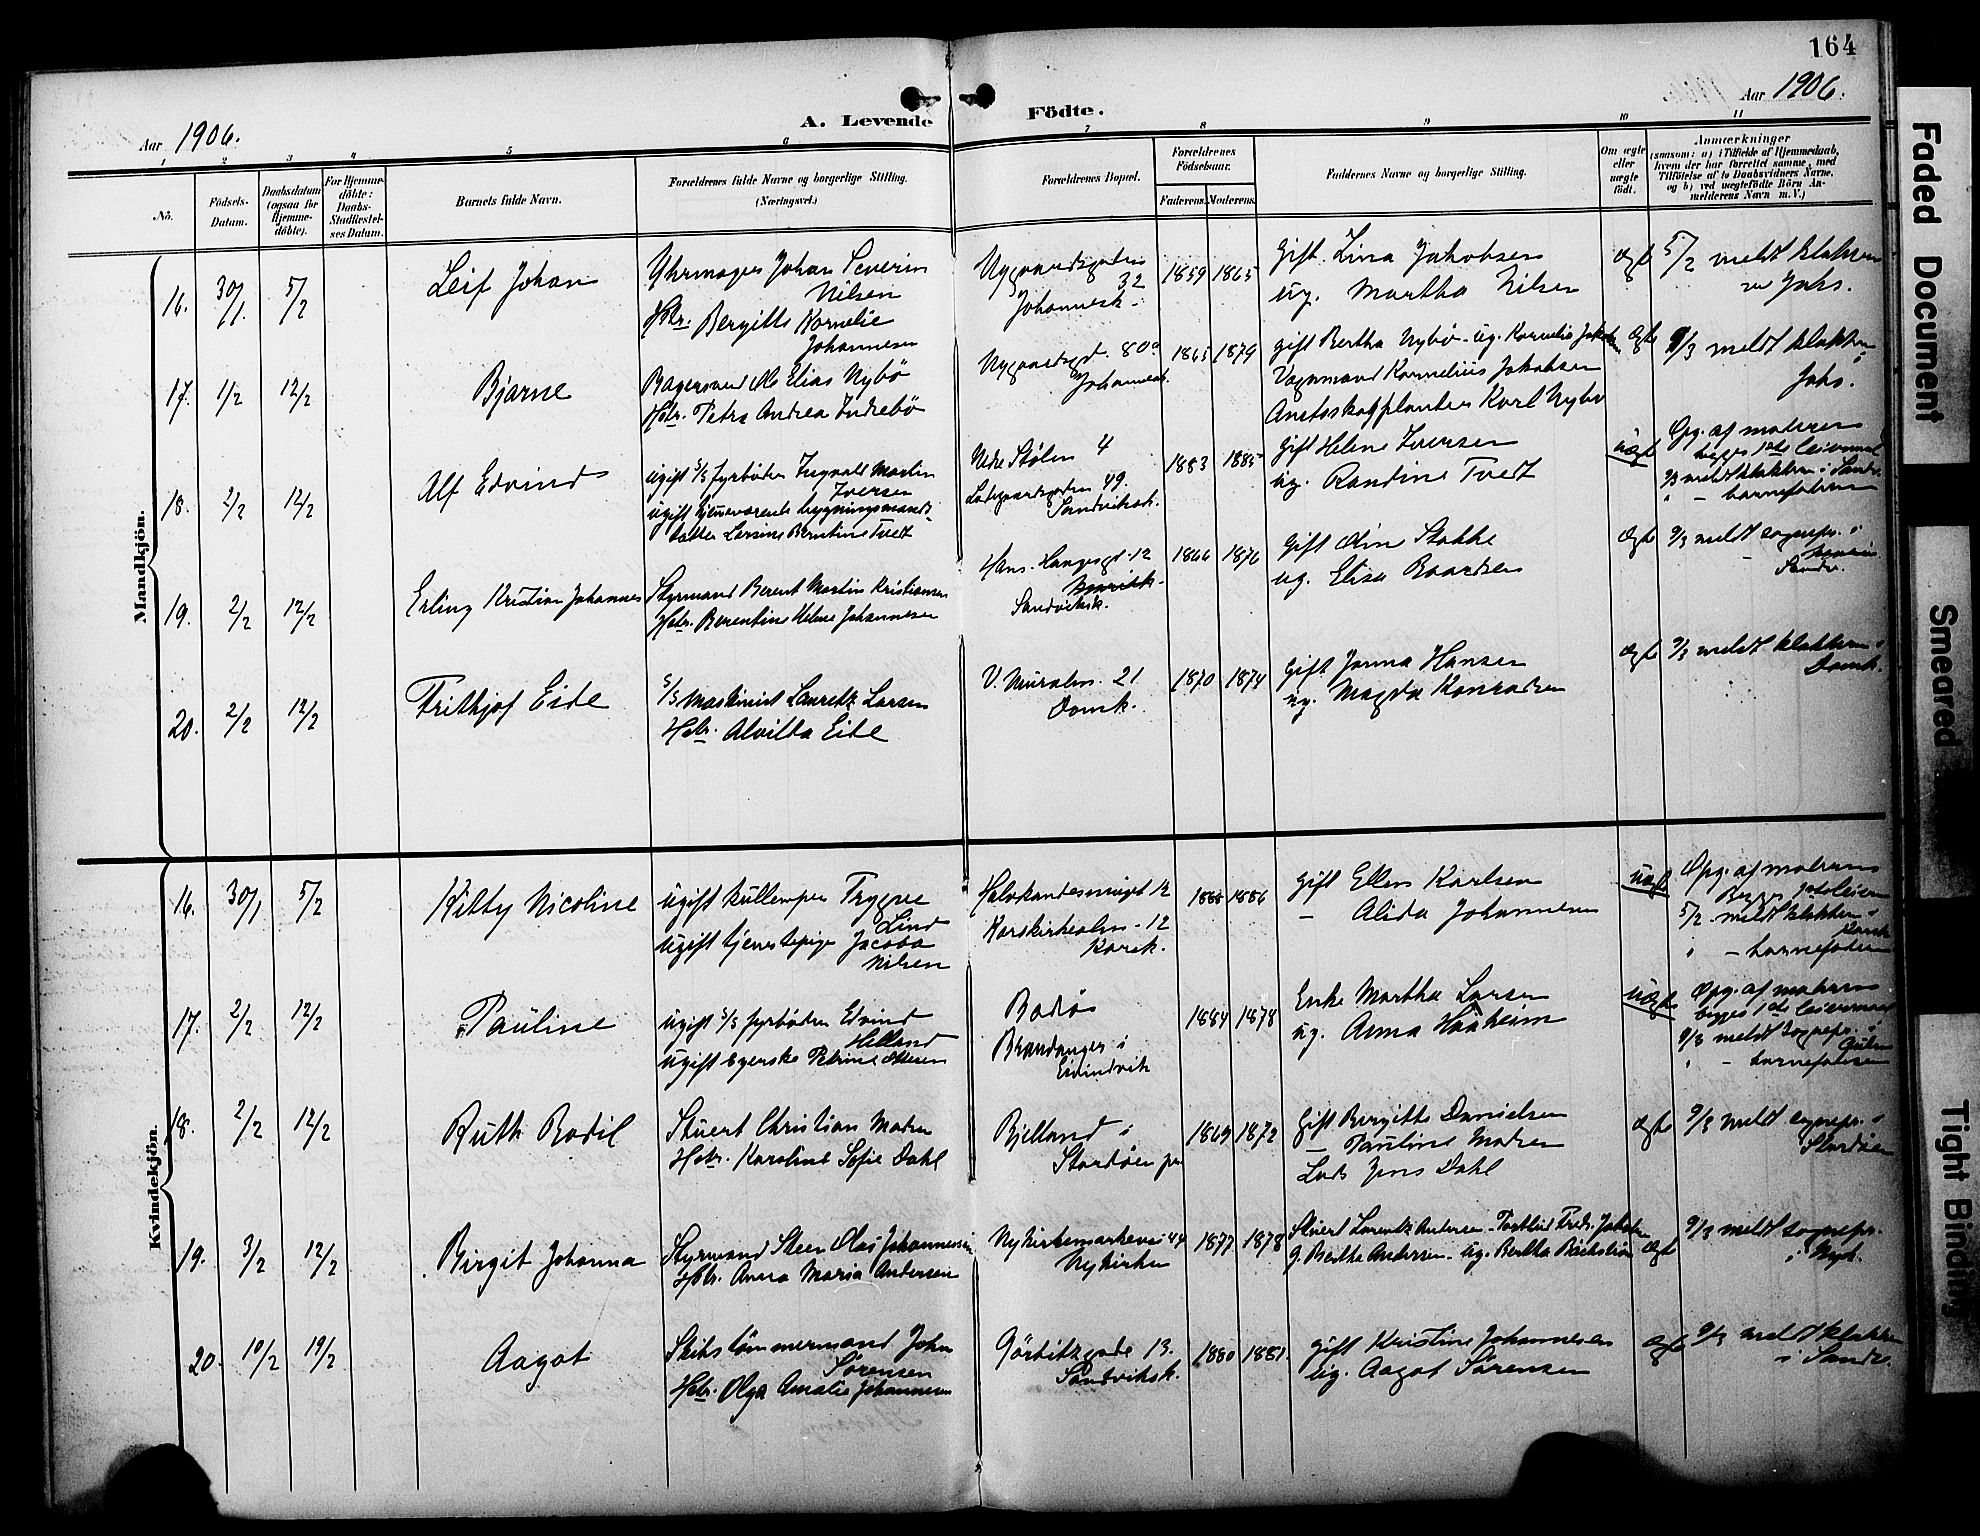 164
Aar 1906.
A. Levende Födte.
Aar 1906.
1 2 3 4 5 6 7 8 9 10 11
No.
Födsels-Datum.
Daabsdatum (ogsaa for Hjemme-döbte).
For Hjemme-döbte: Daabs-Stadfæstel-ses Datum.
Barnets fulde Navn.
Forældrenes fulde Navne og borgerlige Stilling.
(Næringsvei.)
Forældrenes Bopæl.
Forældrenes Födselsaar.
Faderens. Moderens.
Faddernes Navne og borgerlige Stilling.
Om ægte eller uægte født.
Anmærkninger
(saasom: a) i Tilfælde af Hjemmedaab, hvem der har forrettet samme, med Tilføielse af to Daabsvidners Navne, og b) ved uægtefødte Börn Anmelderens Navn m. V.)
Mandkjön.
16. 30/1. 5/2 Leif Johan
Uhrmager Johan Severin
Nilsen
Hstr. Bergitte Kornelie
Johannesen
Nygaardsgaten
32
Johannesk.
1859 1865
Gift Lina Jakobsen
ug. Martha Nilsen
ægte
5/2 meldt klokkeren
Johs.
17. 1/2 12/2 Bjarne
Bagersvend Elias Nybö
Hstr. Petra Andrea Indrebö
Nygaardsgt. 80a
Johannesk.
1865 1879
gift Bertha Nybø. ug. Kornelia Jakobsen
Vognmand Kornelius Jakobsen
Karl Nybø
ægte
9/3 meldt klokkeren
i
Johs.
18. 2/2 12/2 Alf Edvind
ugift S/S fyrböder Ingvald Martin
Iversen
ugift hjemmeværende bygningsmands-
datter Larsine Berntine Tvedt
Nedre Stölen 4
49.
Sandviksk.
1883 1885
Gift Helene Iversen
ug. Randine Tvedt
uægte
Opg. af moderen
begges 1ste leiermaal
9/3 meldt klokkeren i Sandv.
" - barnefaderen
19. 2/2 12/2 Erling Kristian Johannes
Styrmand Berent Martin Kristiansen
Hstr. Berentine Helene Johannesen
Hans Haugesgt. 12
Sandviksk.
1866 1876
Gift Stokke
ug. Elisa Baardsen
ægte
9/3 meldt sognepr. i
Sandv.
20. 2/2 12/2 Frithjof Eide
S/S Maskinist Lauritz Larsen
Hstr. Alvilda Eide
V. Muralm. 21
Domk.
1870 1874
Gift Janna Hansen
ug. Magda Konradsen
ægte
9/3 meldt klokkeren i
Domk.
Kvindekjön.
16. 30/1 5/2 Kitty Nicoline
ugift kullemper Trygve
Lind
ugift tjenestepige Jacoba
Nilsen
12
Korskirkealm. 12
Korsk.
1885 1886
Gift Ellen Karlsen
- Alida Johannesen
uægte
Opg. af moderen
Begges 1ste leierm.
5/2 meldt klokkeren i
Korsk
" - barnefaderen
17. 2/2 12/2 Pauline
ugift S/S fyrböder Edvind
Helland
ugift syerske Petrine Ottesen
Bodø
Brandanger i
Eivindvik
1884 1878
Enke Martha Larsen
ug. Anna Haaheim
uægte
Opg. af moderen
begges 1ste leiermaal
9/3 meldt sognepr. i
Gulen
" - barnefaderen
18. 2/2 12/2 Ruth Bodil
Stuert Christian Madsen
Hstr. Karoline Sofie Dahl
Bjelland i
Stordöen
1869 1872
Gift Bergitte Danielsen
- Pauline Madsen
Lods Jens Dahl
ægte
9/3 meldt sognepr. i
Stordöen
19. 3/2 12/2 Birgit Johanna
Styrmand Steen Olai Johannessen
Hstr. Anna Maria Andersen
Nykirkemarkevei 44
Nykirken
1877 1878
Stuert Lorentz Andersen. Fredr. Jakobsen
g. Berthe Andersen. ug. Bertha
ægte
9/3 meldt sognepr.
i Nyk.
20. 10/2 19/2 Aagot
Skibstömmermand John
Sörensen
Hstr. Olga Amalie Johannesen
Görbitzgade 13.
Sandviksk.
1880 1881.
gift Kristine Johannesen
ug. Aagot Sörensen
ægte
9/3 meldt klokkeren
i Sandv.
Faded Document
Smeared
Tight Binding